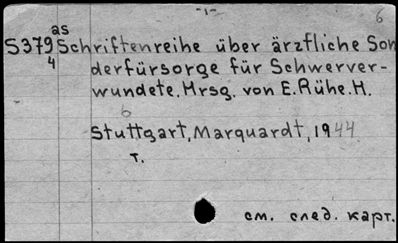 -1-
6
as
S379 Schriftenreihe über ärztliche Son
4 derfürsorge für Schwerver-
wundete. Hrsg. von E. Rühe. H.
6
Stuttgart, Marquardt, 1944
T.
см. след. карт.